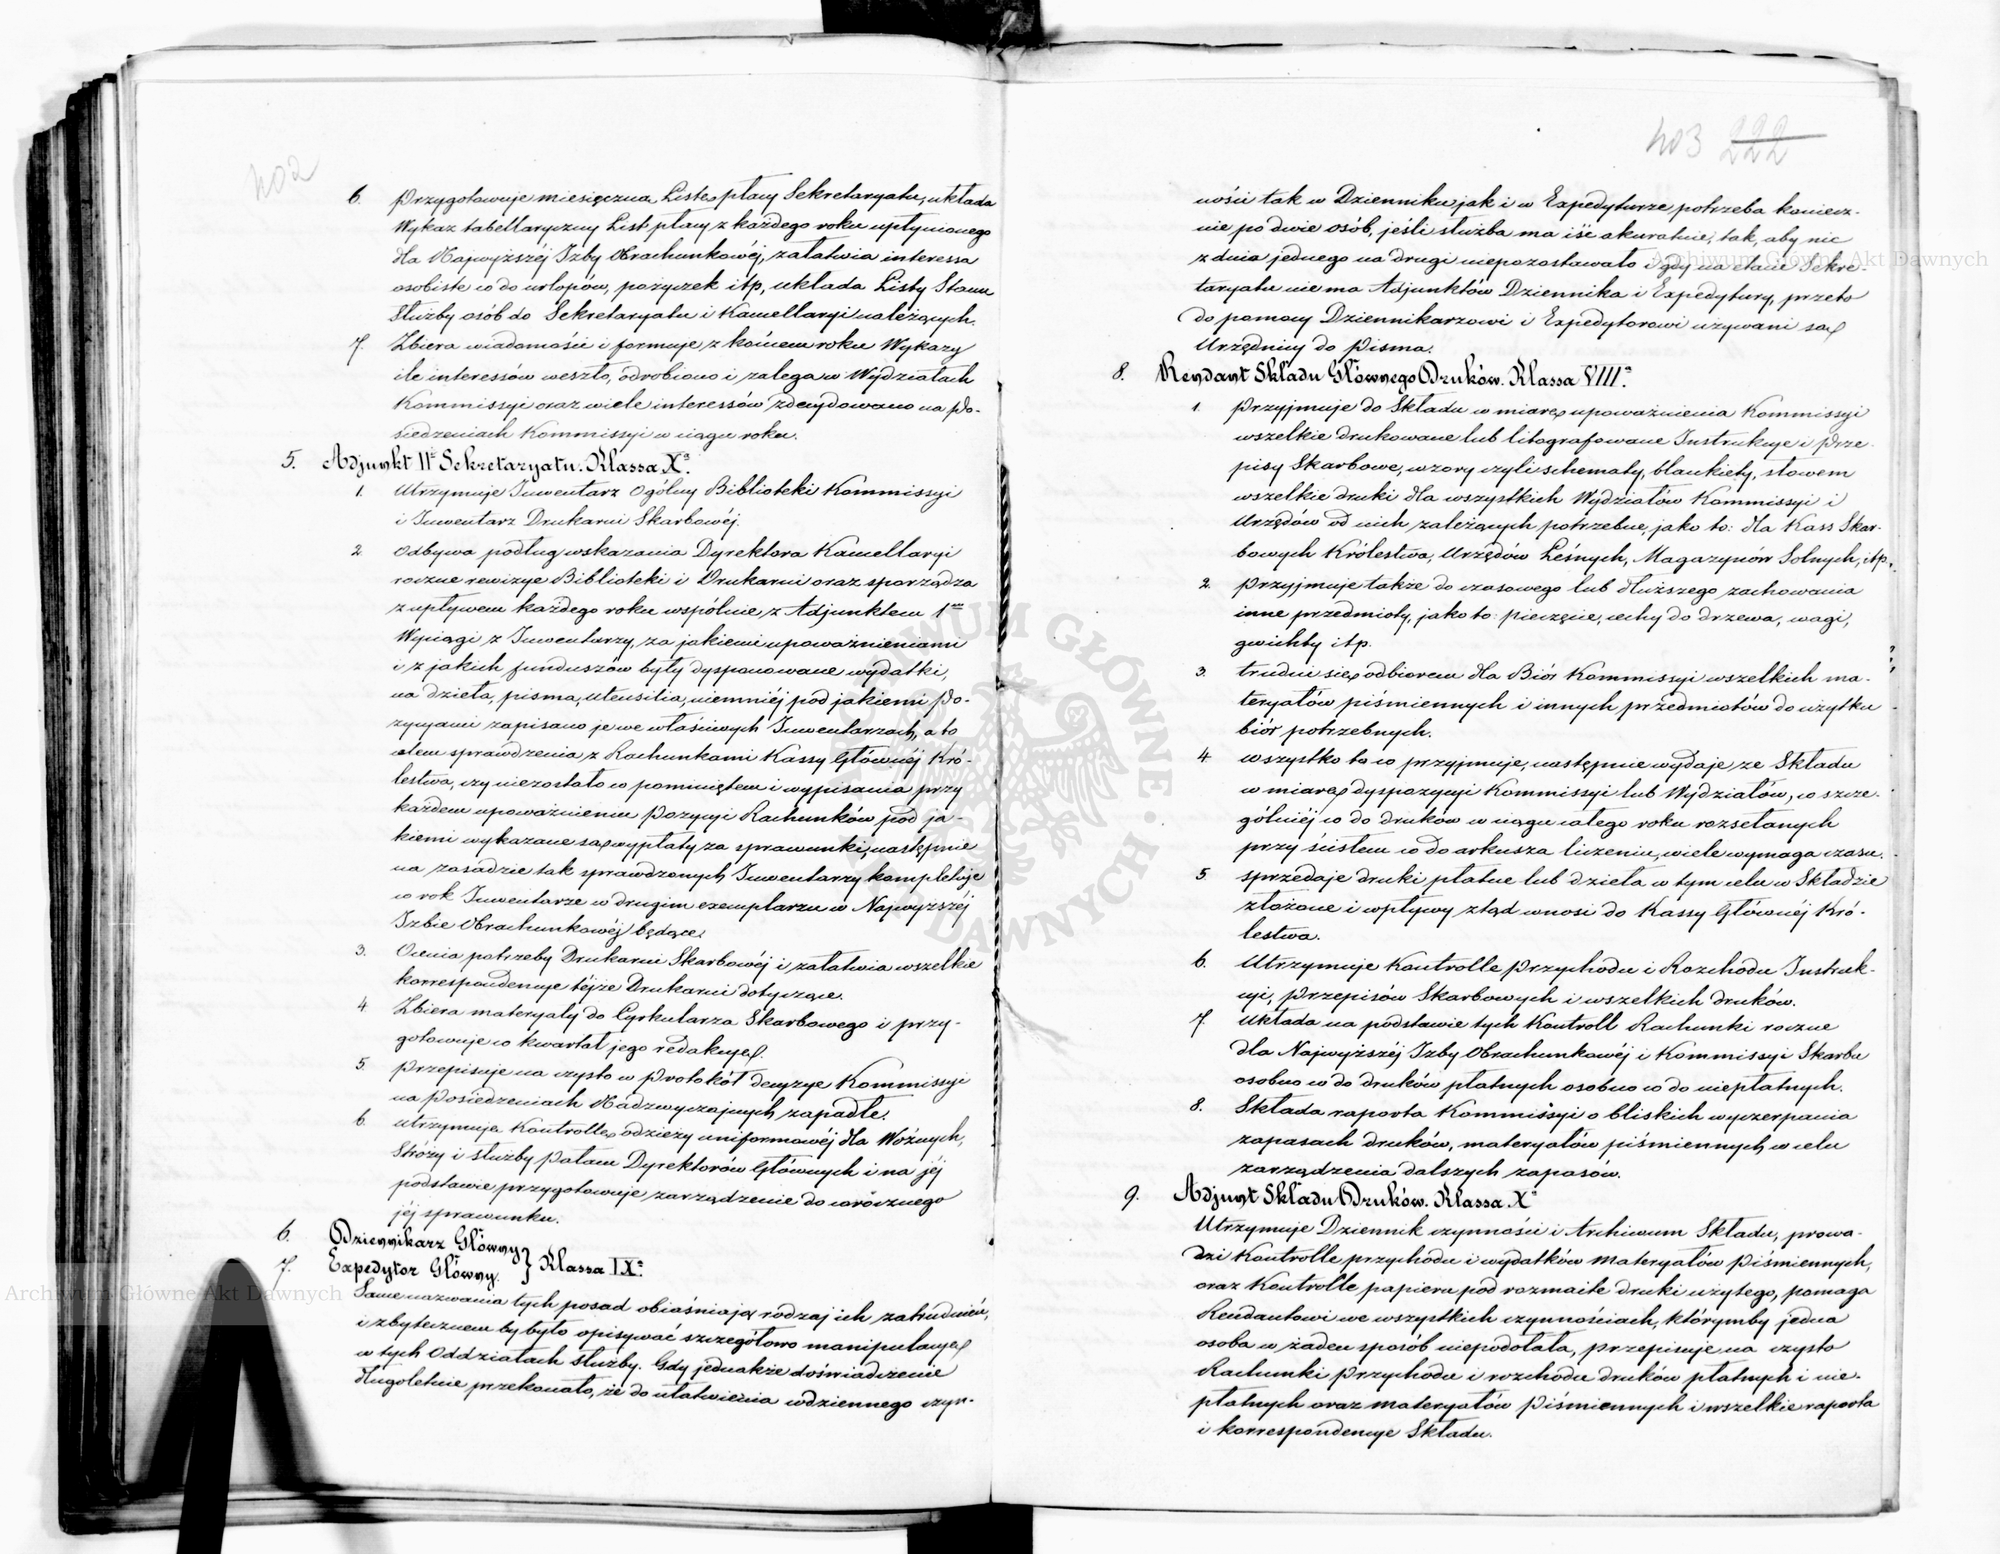 402
6. Przygotowuje miesięczną Listę płacy Sekretaryatu, układa
Wykaz tabellaryczny List płacy z każdego roku upłynionego
dla Najwyższéj Izby Obrachunkowéj, załatwia interessa
osobiste co do urlopów, pożyczek itp, układa Listy Stanu
Służby osób do Sekretaryatu i Kancellaryi należących.
7. Zbiera wiadomości i formuje z końcem roku Wykazy
ile interessów weszło, odrobiono i zalega w Wydziałach
Kommissyi oraz wiele interessów zdecydowano na Po-
siedzeniach Kommissyi w ciągu roku.
5. Adjunkt IIi Sekretaryatu. Klassa Xa.
1. Utrzymuje Inwentarz Ogólny Biblioteki Kommissyi
i Inwentarz Drukarni Skarbowéj.
2. Odbywa podług wskazania Dyrektora Kancellaryi
roczne rewizye Biblioteki i Drukarni oraz sporządza
z upływem każdego roku wspólnie z Adjunktem 1ym
Wyciągi z Inwentarzy, za jakiemi upoważnieniami
i z jakich funduszów były dysponowane wydatki,
na dzieła, pisma, utensilia, niemniéj pod jakiemi Po-
zycyami zapisano je we właściwych Inwentarzach, a to
celem sprawdzenia z Rachunkami Kassy Głównéj Kró-
lestwa, czy niezostało co pominiętem i wypisania przy
każdem upoważnieniu Pozycyi Rachunków pod ja-
kiemi wykazane są wypłaty za sprawunki, następnie
na zasadzie tak sprawdzonych Inwentarzy kompletuje
co rok Inwentarze w drugim exemplarzu w Najwyższéj
Izbie Obrachunkowéj będące.
3. Ocenia potrzeby Drukarni Skarbowéj i załatwia wszelkie
korrespondencye téjże Drukarni dotyczące.
4. Zbiera materyały do Cyrkularza Skarbowego i przy-
gotowuje co kwartał jego redakcyę.
5. Przepisuje na czysto w Protokół decyzye Kommissyi
na Posiedzeniach Nadzwyczajnych zapadłe.
6. utrzymuje Kontrollę odzieży uniformowéj dla Woźnych,
Stróży i służby Pałacu Dyrektorów Głównych i na jéj
podstawie przygotowuje zarządzenie do corocznego
jéj sprawunku.
6. Dziennikarz Główny
7. Expedytor Główny. } Klassa IXa.
Same nazwania tych posad obiaśniają rodzaj ich zatrudnień,
i zbytecznem by było opisywać szczegółowo manipulacyę
w tych Oddziałach służby. Gdy jednakże doświadczenie
długoletnie przekonało, że do ułatwienia codziennego czyn-
403 222
ności tak w Dzienniku jak i w Expedyturze potrzeba koniecz-
nie po dwie osób, jeśli służba ma iść akuratnie, tak, aby nic
z dnia jednego na drugi niepozostawało i gdy na etacie Sekre-
taryatu nie ma Adjunktów Dziennika i Expedytury, przeto
do pomocy Dziennikarzowi i Expedytorowi używani są
Urzędnicy do Pisma.
8. Rendant Składu Głównego Druków. Klassa VIIIa.
1. Przyjmuje do Składu w miarę upoważnienia Kommissyi
wszelkie drukowane lub litografowane Instrukcye i Prze-
pisy Skarbowe, wzory czyli schematy, blankiety, słowem
wszelkie druki dla wszystkich Wydziałów Kommissyi i
Urzędów od nich zależących potrzebne, jako to: dla Kass Skar-
bowych Królestwa, Urzędów Leśnych, Magazynów Solnych, itp.
2. Przyjmuje także do czasowego lub dłuższego zachowania
inne przedmioty, jako to: pieczęcie, cechy do drzewa, wagi,
gwichty itp.
3. trudni się odbiorem dla Biór Kommissyi wszelkich ma-
teryałów piśmiennych i innych przedmiotów do użytku
biór potrzebnych.
4. wszystko to co przyjmuje, następnie wydaje ze Składu
w miarę dyspozycyi Kommissyi lub Wydziałów, co szcze-
gólniéj co do druków w ciągu całego roku rozsełanych
przy ścisłem co do arkusza liczeniu, wiele wymaga czasu.
5. sprzedaje druki płatne lub dzieła w tym celu w Składzie
złożone i wpływy ztąd wnosi do Kassy Głównéj Kró-
lestwa.
6. Utrzymuje Kontrolle Przychodu i Rozchodu Instruk-
cyi, Przepisów Skarbowych i wszelkich druków.
7. Układa na podstawie tych Kontroll Rachunki roczne
dla Najwyższéj Izby Obrachunkowéj i Kommissyi Skarbu
osobno co do druków płatnych osobno co do niepłatnych.
8. Składa raporta Kommissyi o bliskich wyczerpania
zapasach druków, materyałów piśmiennych, w celu
zarządzenia dalszych zapasów.
9. Adjunkt Składu Druków. Klassa Xa
Utrzymuje Dziennik czynności i Archiwum Składu, prowa-
dzi Kontrolle przychodu i wydatków Materyałów Piśmiennych,
oraz Kontrolle papieru pod rozmaite druki użytego, pomaga
Rendantowi we wszystkich czynnościach, którymby jedna
osoba w żaden sposób niepodołała, przepisuje na czysto
Rachunki Przychodu i rozchodu druków płatnych i nie-
płatnych oraz materyałów Piśmiennych i wszelkie raporta
i korrespondencye Składu.
Archiwum Główne Akt Dawnych
Archiwum Główne Akt Dawnych
ARCHIWUM GŁÓWNE AKT DAWNYCH